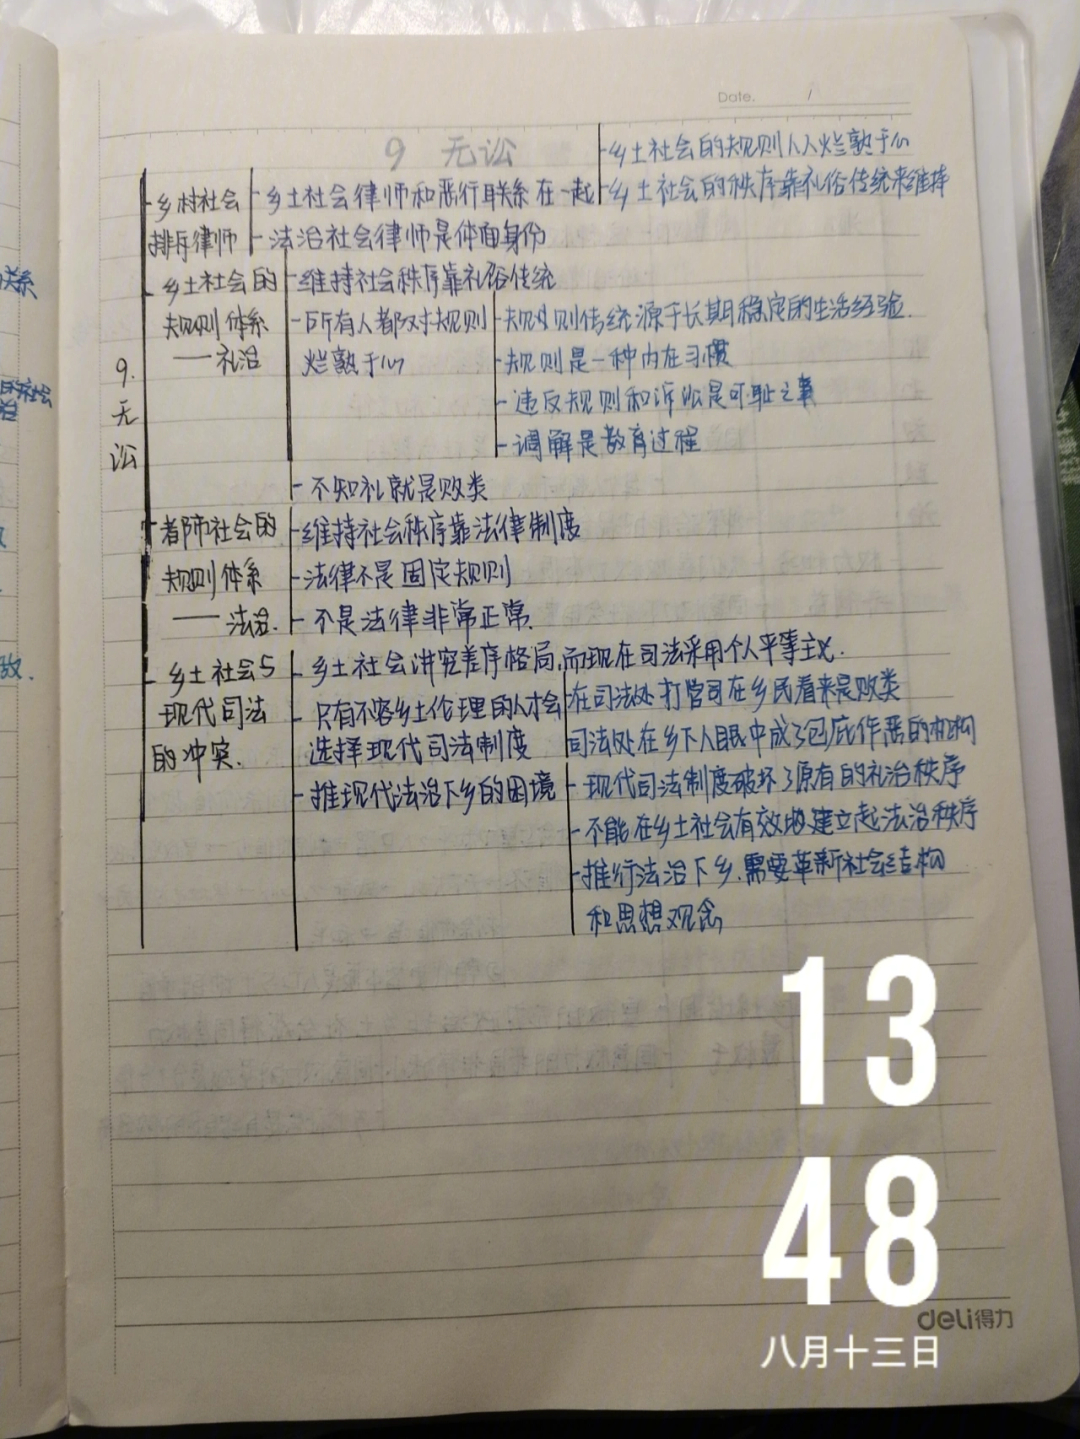 Date. /
9 无讼
乡土社会的规则人人烂熟于心
乡村社会 乡土社会律师和恶行联系在一起 乡土社会的秩序靠礼俗传统来维持
排斥律师 法治社会律师是体面身份
乡土社会的 维持社会秩序靠礼俗传统
规则体系 所有人都对规则 规则传统源于长期稳定的生活经验.
——礼治 烂熟于心 规则是一种内在习惯
违反规则和诉讼是可耻之事
调解是教育过程
9.
无
讼
不知礼就是败类
都市社会的 维持社会秩序靠法律制度
规则体系 法律不是固定规则
——法治. 不是法律非常正常.
乡土社会与 乡土社会讲究差序格局,而现在司法采用个人平等主义.
现代司法 只有不容乡土伦理的人才会 在司法处打官司在乡民看来是败类
的冲突. 选择现代司法制度 司法处在乡下人眼中成了包庇作恶的机构
推现代法治下乡的困境 现代司法制度破坏了原有的礼治秩序
不能在乡土社会有效地建立起法治秩序
推行法治下乡.需要革新社会结构
和思想观念
13
48
deli得力
八月十三日